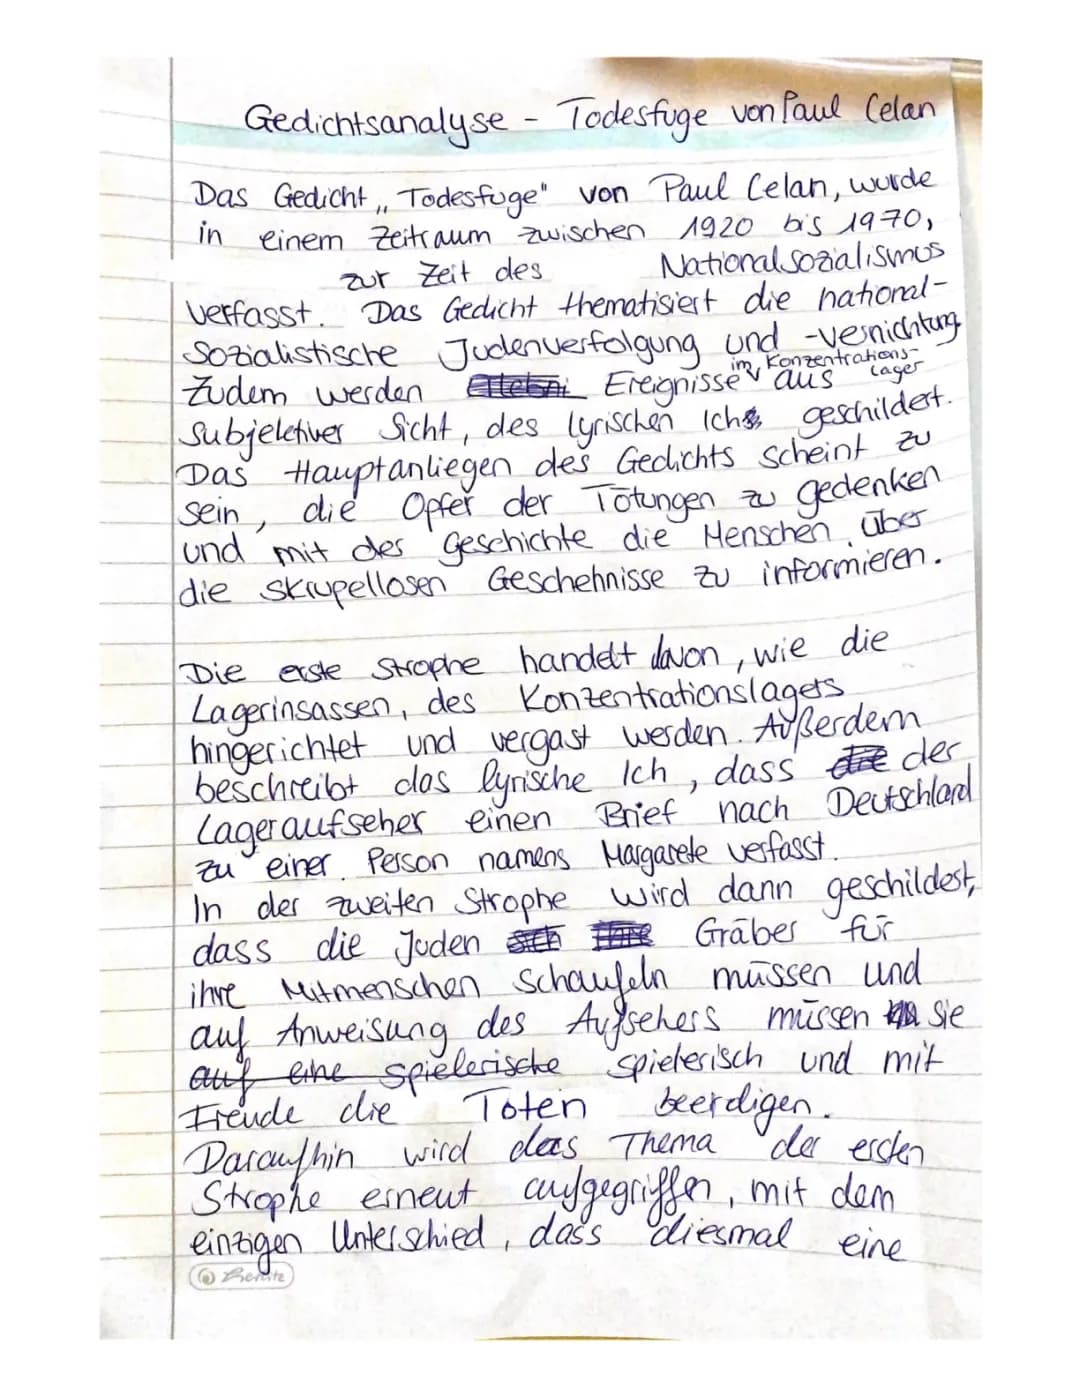 Gedichtsanalyse - Todesfuge von Paul Celan
Das Gedicht „Todesfuge" von Paul Celan, wurde
in einem Zeitraum zwischen 1920 bis 1970,
zur Zeit des Nationalsozialismus
verfasst. Das Gedicht thematisiert die national-
sozialistische Judenverfolgung und -vernichtung.
Zudem werden Ereignisse im Konzentrations-lager aus
subjektiver Sicht, des lyrischen Ichs geschildert.
Das Hauptanliegen des Gedichts scheint zu
sein, die Opfer der Tötungen zu gedenken
und mit der Geschichte die Menschen über
die skrupellosen Geschehnisse zu informieren.
Die erste Strophe handelt davon, wie die
Lagerinsassen, des Konzentrationslagers
hingerichtet und vergast werden. Außerdem
beschreibt das lyrische Ich, dass die der
Lageraufseher einen Brief nach Deutschland
zu einer Person namens Margarete verfasst.
In der zweiten Strophe wird dann geschildert,
dass die Juden sich ihre Gräber für
ihre Mitmenschen schaufeln müssen und
auf Anweisung des Aufsehers müssen sie
auf eine spielerische spielerisch und mit
Freude die Toten beerdigen.
Daraufhin wird das Thema der ersten
Strophe erneut aufgegriffen, mit dem
einzigen Unterschied, dass diesmal eine
herlitz